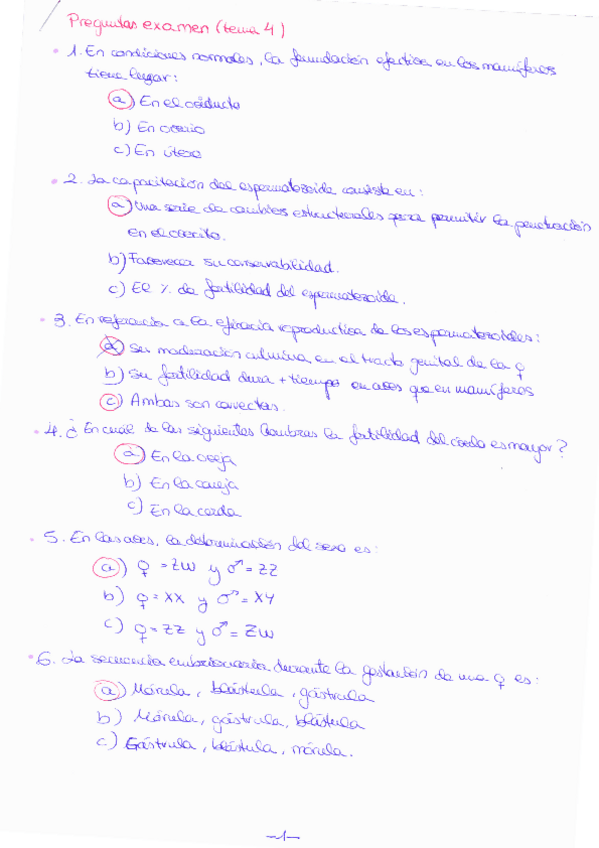 Preguntas examen (tema 4)
1. En condiciones normales, la fecundación efectiva en los mamíferos
tiene lugar:
a) En el oviducto
b) En ovario
c) En útero
2. La capacitación del espermatozoide consiste en:
a) Una serie de cambios estructurales para permitir la penetración
en el ovocito.
b) Favorecer su conservabilidad.
c) El % de fertilidad del espermatozoide.
3. En referencia a la eficacia reproductiva de los espermatozoides:
a) Su maduración culmina en el tracto genital de la ♀
b) Su fertilidad dura + tiempo en aves que en mamíferos
c) Ambas son correctas.
4. ¿En cuál de las siguientes hembras la fertilidad del óvulo es mayor?
a) En la oveja
b) En la coneja
c) En la cerda
5. En las aves, la determinación del sexo es:
a) ♀ = ZW y ♂ = ZZ
b) ♀ = XX y ♂ = XY
c) ♀ = ZZ y ♂ = ZW
6. La secuencia embrionaria durante la gestación de una ♀ es:
a) Mórula, blástula, gástrula
b) Mórula, gástrula, blástula
c) Gástrula, blástula, mórula.
-1-